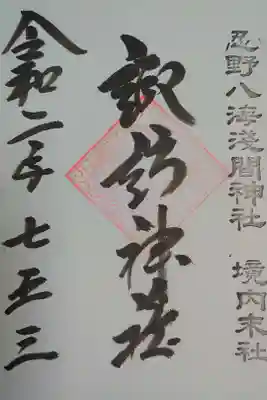 忍野八海淺間神社 境内末社
諏訪神社
令和二年 七五三